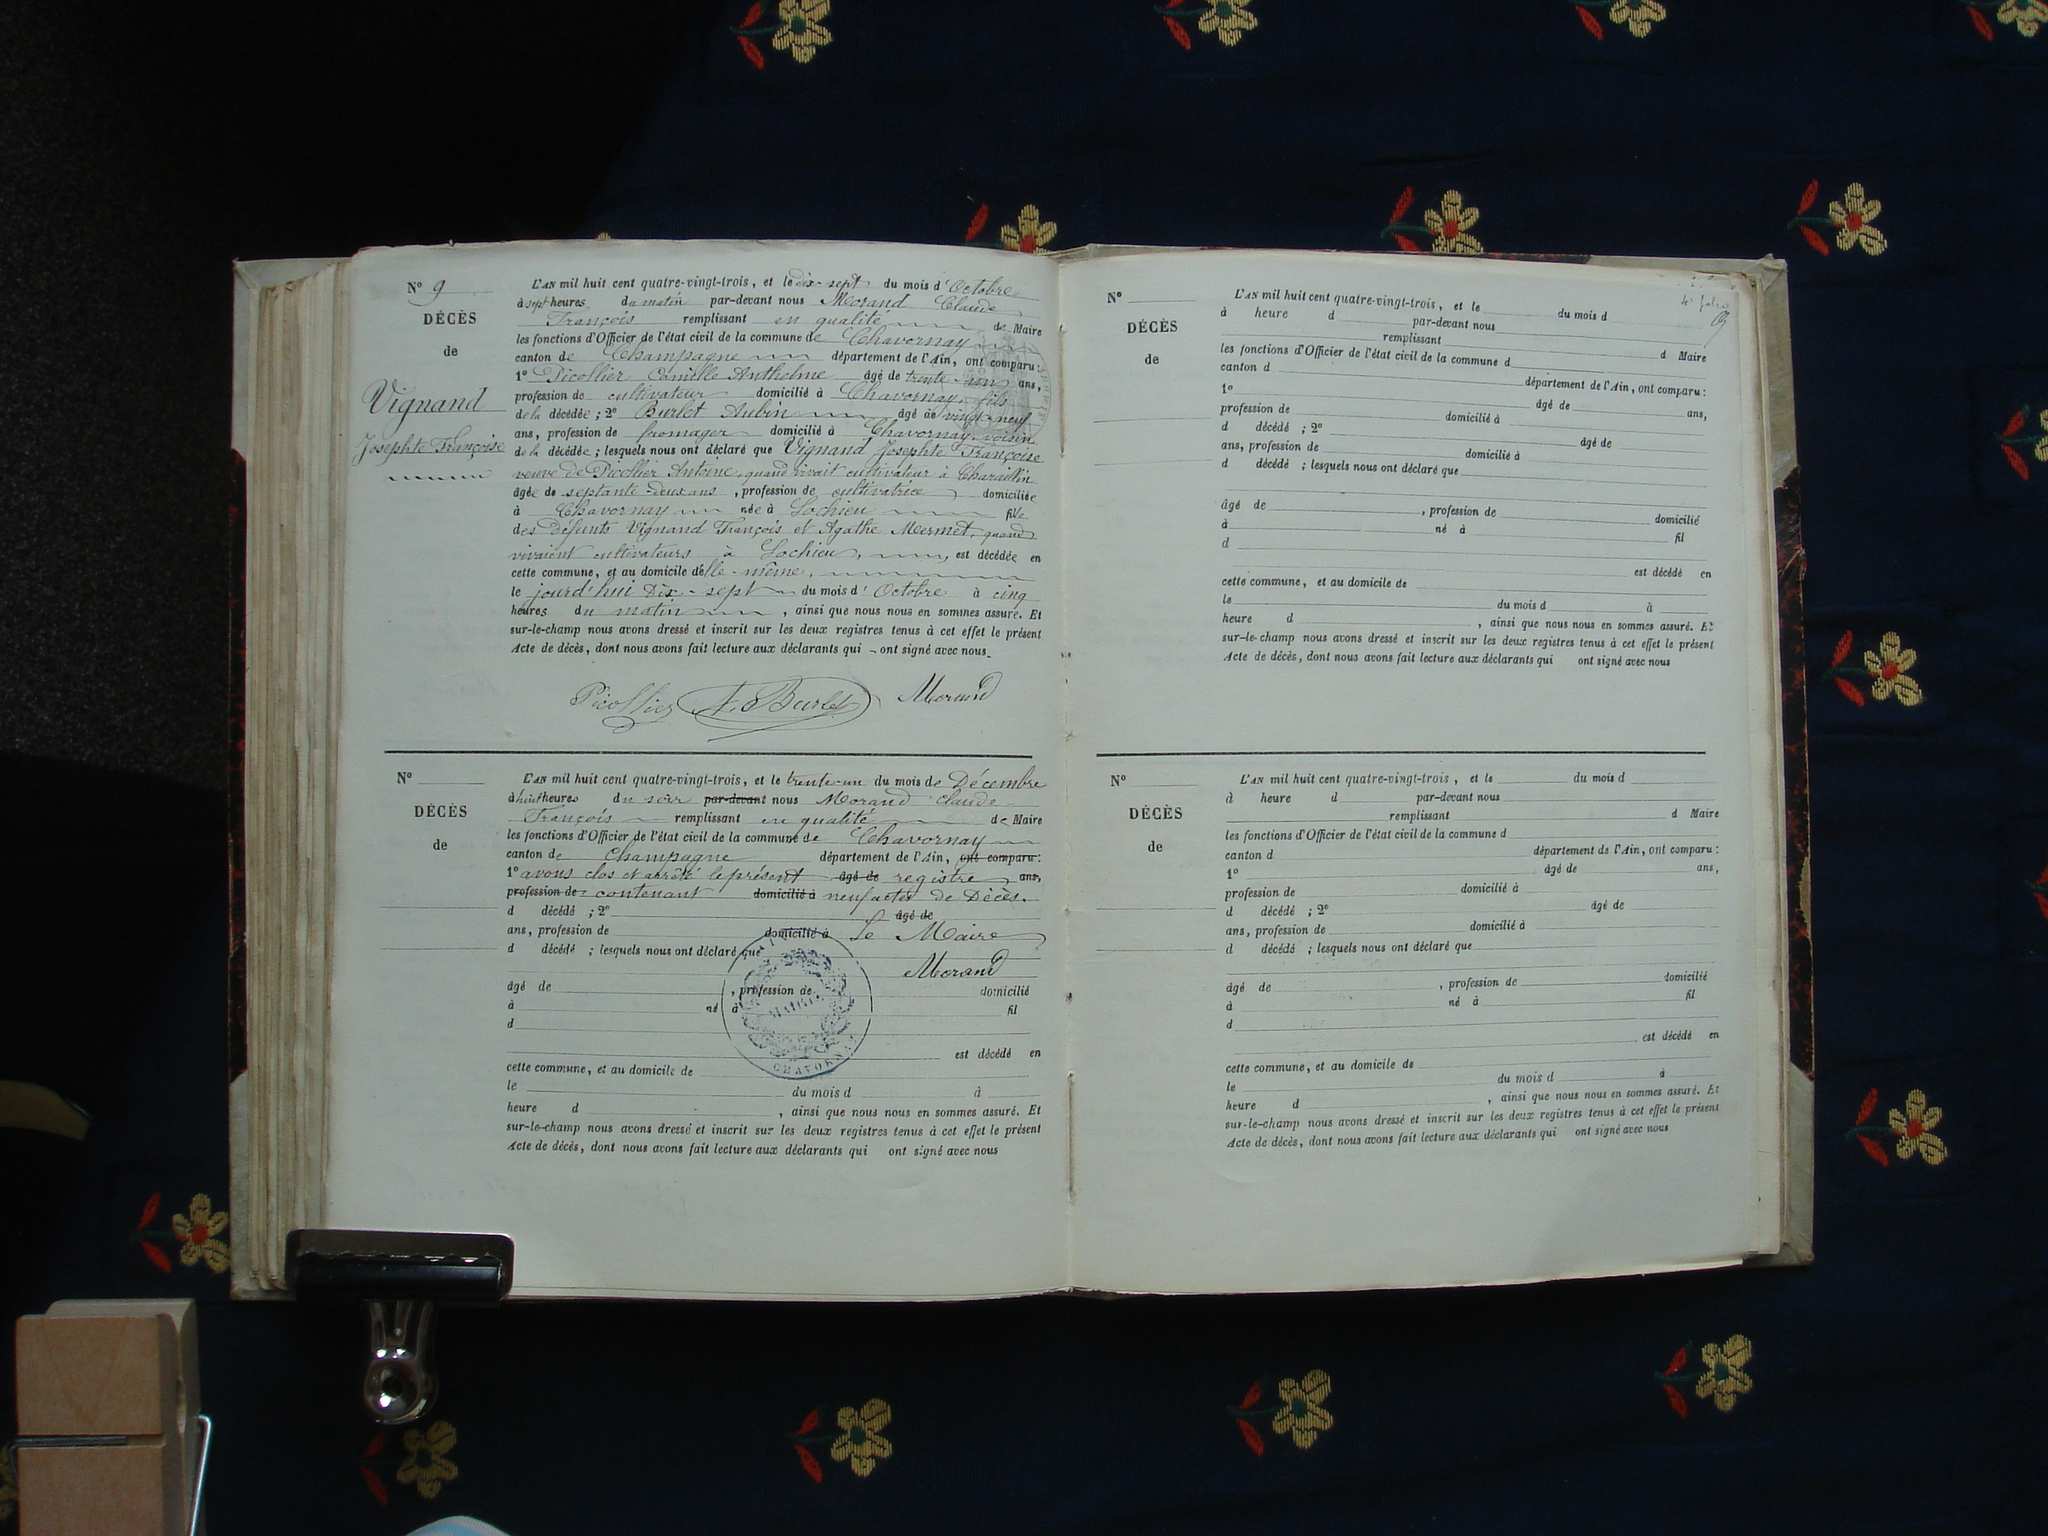 N° 9
DÉCÈS
de
Vignand
Josephte Françoise
L'AN mil huit cent quatre-vingt-trois, et le dix-sept du mois d'Octobre
à sept heures du matin par-devant nous Morand Claude
François remplissant en qualité de Maire
les fonctions d'Officier de l'état civil de la commune de Chavornay
canton de Champagne département de l'Ain, ont comparu:
1° Picollier Camille Anthelme âgé de trente-un ans,
profession de cultivateur domicilié à Chavornay, fils
de la décédée; 2° Burlet Aubin âgé de vingt-neuf
ans, profession de fromager domicilié à Chavornay, voisin
de la décédée; lesquels nous ont déclaré que Vignand Josephte Françoise
veuve de Picollier Antoine, quand vivait cultivateur à Charaillin
âgée de septante-deux ans, profession de cultivatrice domiciliée
à Chavornay née à Lochieu fille
des défunts Vignand François et Agathe Mermet, quand
vivaient cultivateurs à Lochieu, est décédée en
cette commune, et au domicile d'elle-même,
le jourd'hui Dix-sept du mois d'Octobre à cinq
heures du matin, ainsi que nous nous en sommes assuré. Et
sur-le-champ nous avons dressé et inscrit sur les deux registres tenus à cet effet le présent
Acte de décès, dont nous avons fait lecture aux déclarants qui ont signé avec nous.
Picollier A. Burlet Morand
N°
DÉCÈS
de
L'AN mil huit cent quatre-vingt-trois, et le trente-un du mois de Décembre
à huit heures du soir par-devant nous Morand Claude
François remplissant en qualité de Maire
les fonctions d'Officier de l'état civil de la commune de Chavornay
canton de Champagne département de l'Ain, ont comparu:
1° avons clos et arrêté le présent âgé de registre ans,
profession de contenant domicilié à neuf actes de Décès.
d décédé; 2° âgé de
ans, profession de domicilié à Le Maire
d décédé; lesquels nous ont déclaré que
Morand
âgé de , profession de domicilié
à né à fil
d
est décédé en
cette commune, et au domicile de
le du mois d à
heure d , ainsi que nous nous en sommes assuré. Et
sur-le-champ nous avons dressé et inscrit sur les deux registres tenus à cet effet le présent
Acte de décès, dont nous avons fait lecture aux déclarants qui ont signé avec nous
MAIRIE
CHAVORNAY
4e folio
N°
DÉCÈS
de
L'AN mil huit cent quatre-vingt-trois, et le du mois d
à heure d par-devant nous
remplissant d Maire
les fonctions d'Officier de l'état civil de la commune d
canton d département de l'Ain, ont comparu:
1° âgé de ans,
profession de domicilié à
d décédé; 2° âgé de
ans, profession de domicilié à
d décédé; lesquels nous ont déclaré que
âgé de , profession de domicilié
à né à fil
d
est décédé en
cette commune, et au domicile de
le du mois d à
heure d , ainsi que nous nous en sommes assuré. Et
sur-le-champ nous avons dressé et inscrit sur les deux registres tenus à cet effet le présent
Acte de décès, dont nous avons fait lecture aux déclarants qui ont signé avec nous
N°
DÉCÈS
de
L'AN mil huit cent quatre-vingt-trois, et le du mois d
à heure d par-devant nous
remplissant d Maire
les fonctions d'Officier de l'état civil de la commune d
canton d département de l'Ain, ont comparu:
1° âgé de ans,
profession de domicilié à
d décédé; 2° âgé de
ans, profession de domicilié à
d décédé; lesquels nous ont déclaré que
âgé de , profession de domicilié
à né à fil
d
est décédé en
cette commune, et au domicile de
le du mois d à
heure d , ainsi que nous nous en sommes assuré. Et
sur-le-champ nous avons dressé et inscrit sur les deux registres tenus à cet effet le présent
Acte de décès, dont nous avons fait lecture aux déclarants qui ont signé avec nous